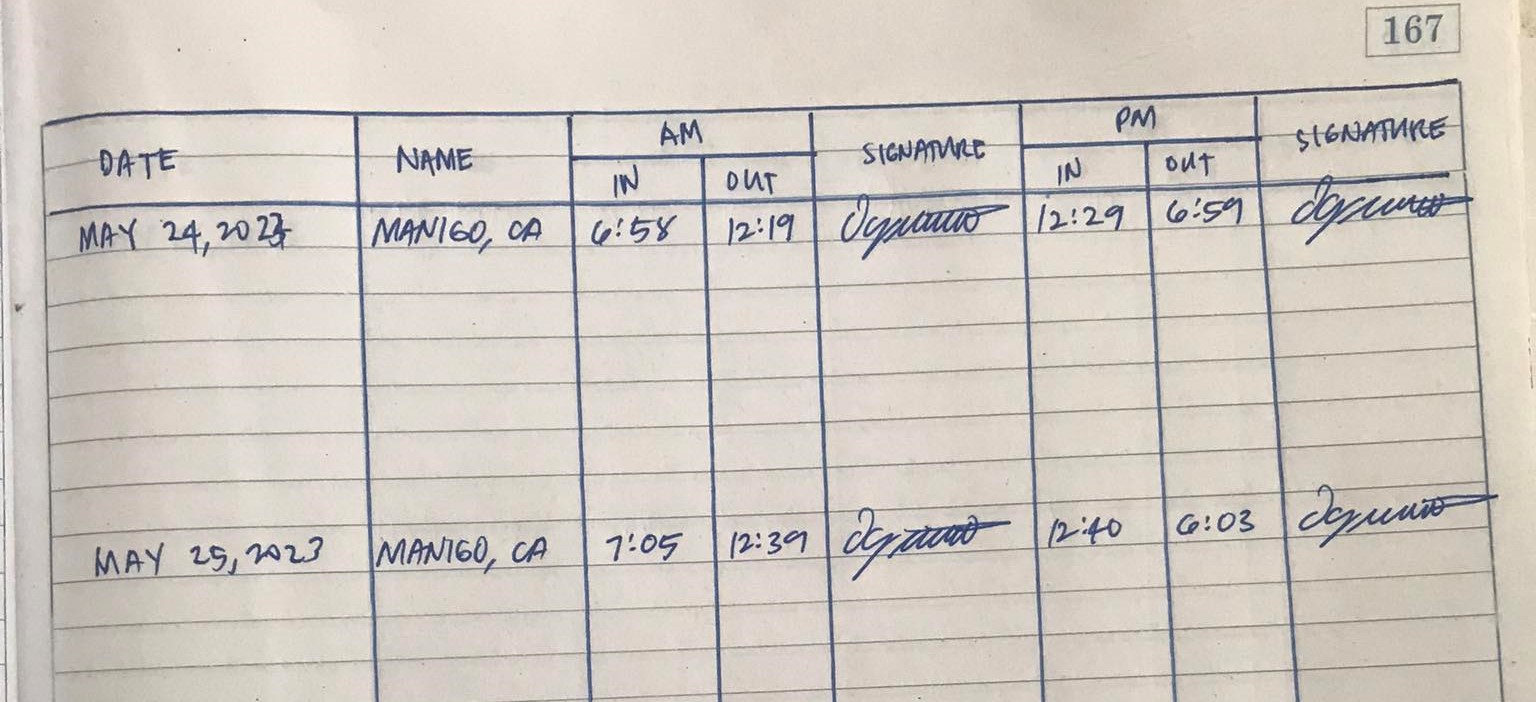 167
DATE NAME AM SIGNATURE PM SIGNATURE
IN OUT IN OUT
MAY 24, 2023 MANIGO, CA 6:58 12:19 12:29 6:59
MAY 25, 2023 MANIGO, CA 7:05 12:39 12:40 6:03